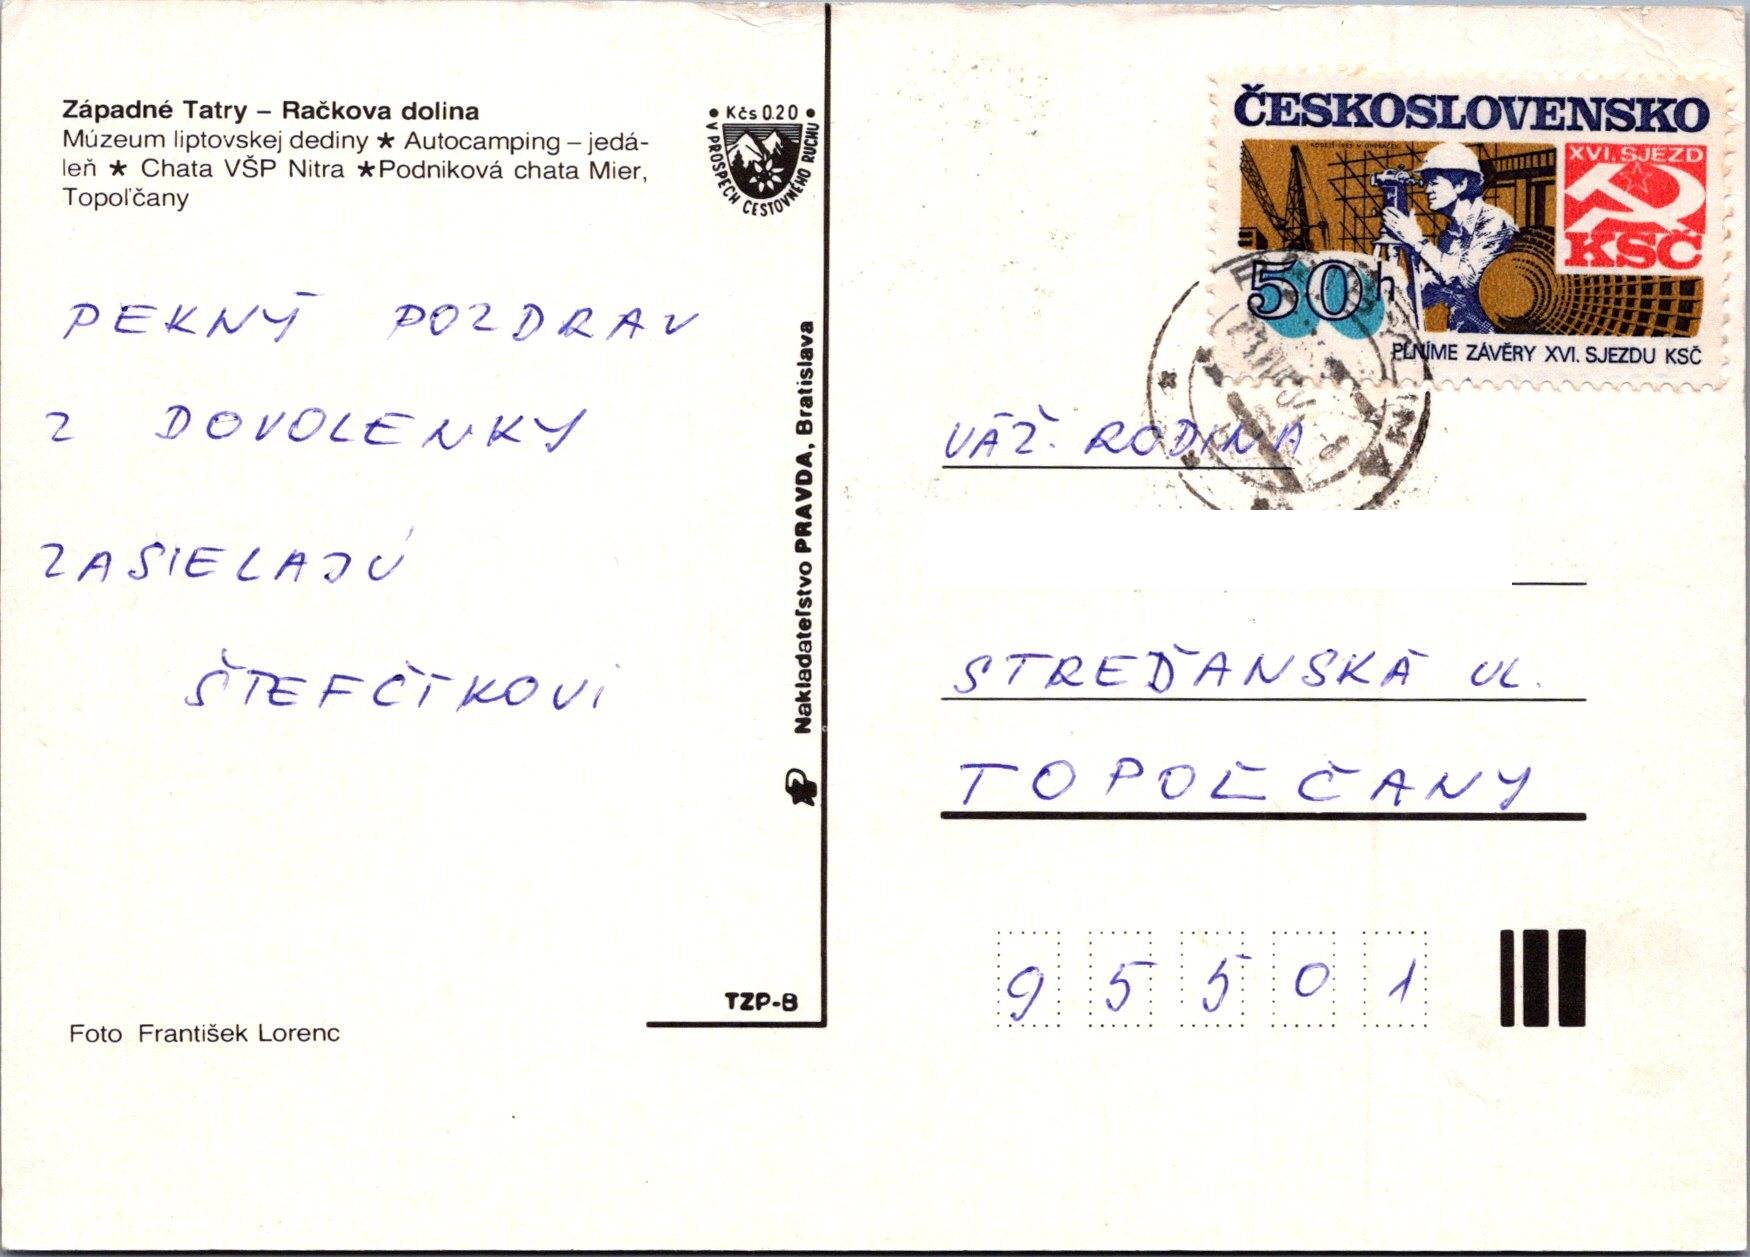 Západné Tatry – Račkova dolina
Múzeum liptovskej dediny ★ Autocamping – jedá-
leň ★ Chata VŠP Nitra ★ Podniková chata Mier,
Topoľčany
• Kčs 0.20 •
V PROSPECH CESTOVNÉHO RUCHU
PEKNÝ POZDRAV
Z DOVOLENKY
ZASIELAJÚ
ŠTEFČÍKOVI
Foto František Lorenc
TZP-B
Nakladateľstvo PRAVDA, Bratislava
ČESKOSLOVENSKO
XVI. SJEZD
KSČ
50h
PLNÍME ZÁVĚRY XVI. SJEZDU KSČ
VÁŽ. RODINA
STREĎANSKÁ UL.
TOPOĽČANY
95501